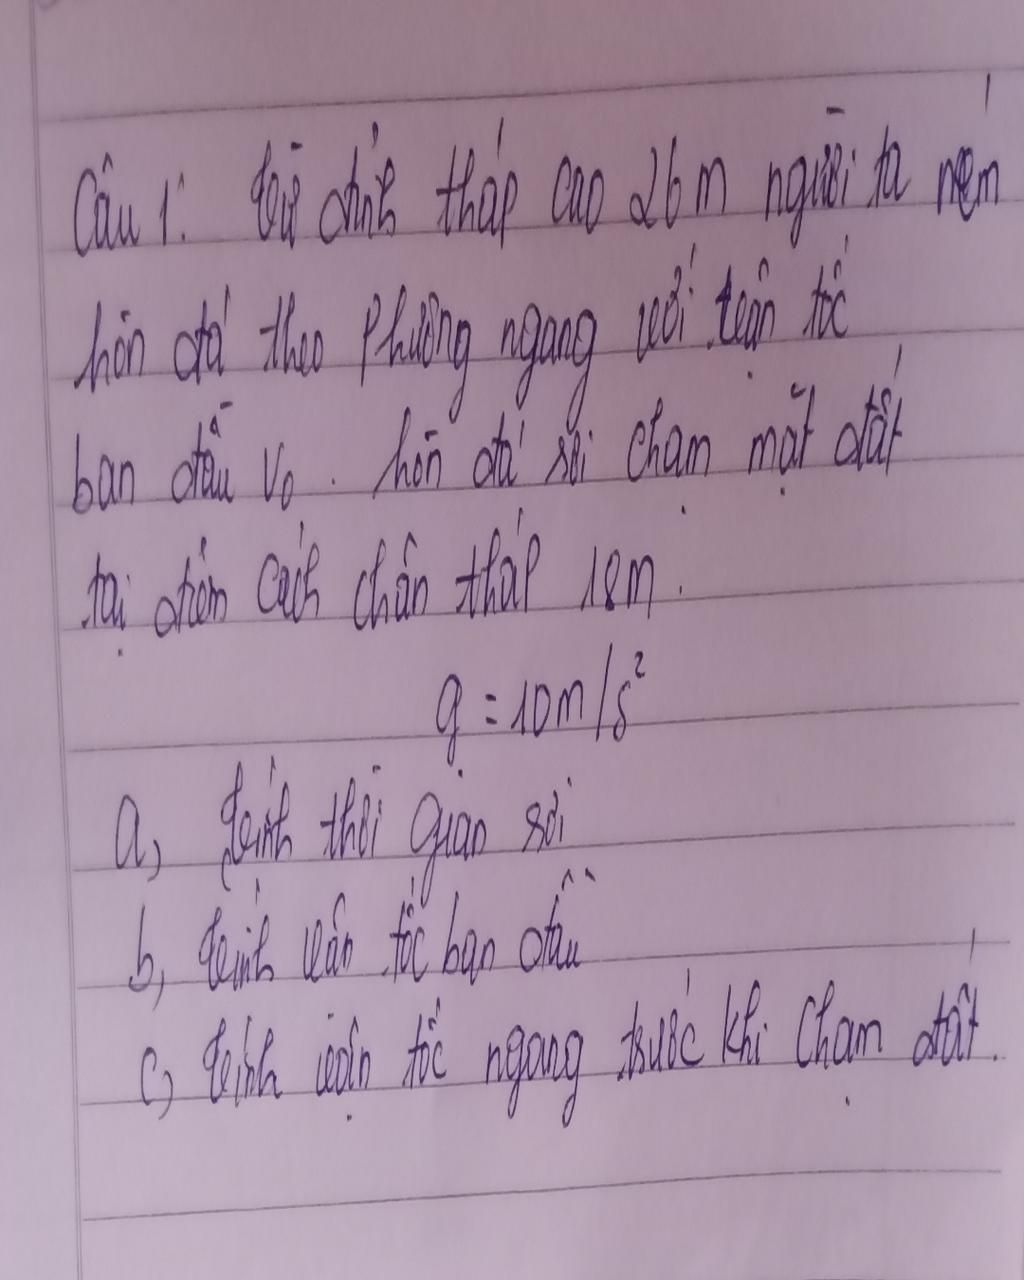 Câu 1: Từ đỉnh tháp cao 26m người ta ném
hòn đá theo phương ngang với vận tốc
ban đầu v₀. hòn đá rơi chạm mặt đất
tại điểm cách chân tháp 18m.
g = 10m/s²
a, Tính thời gian rơi
b, Tính vận tốc ban đầu
c, Tính vận tốc ngang trước khi chạm đất.